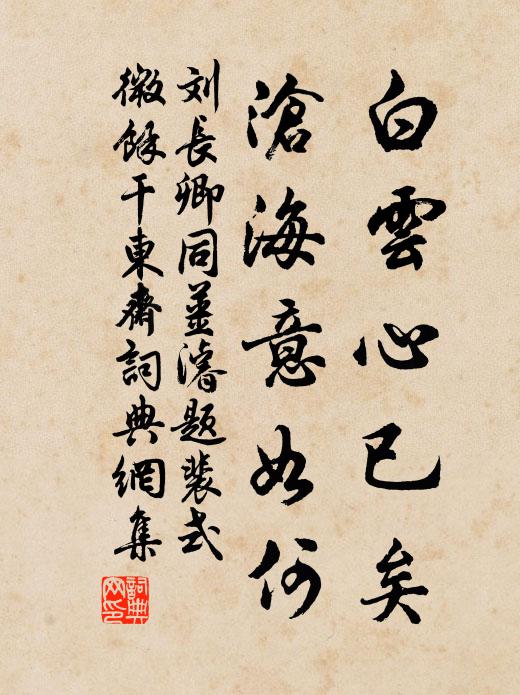 白雲心已矣
滄海意如何
刘長卿同姜濬題裴式
微餘干東齋詞典網集
詞典網印